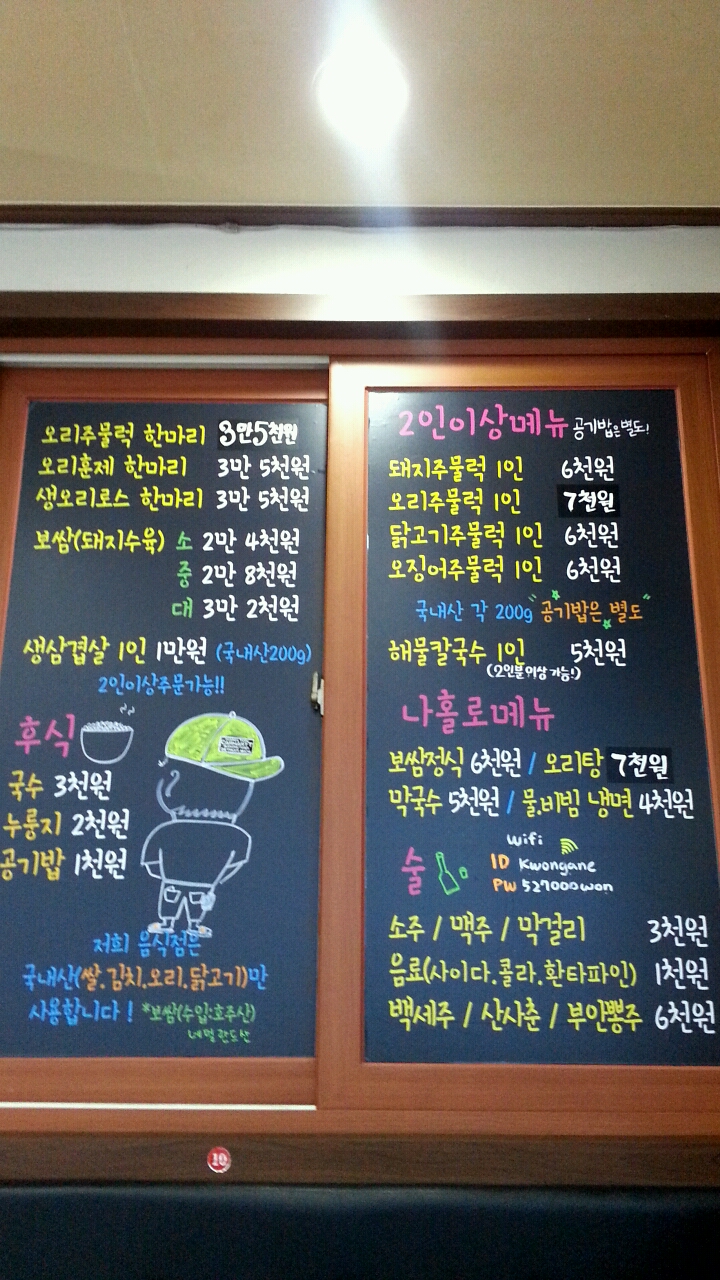 오리주물럭 한마리 3만5천원
오리훈제 한마리 3만 5천원
생오리로스 한마리 3만 5천원
보쌈(돼지수육) 소 2만 4천원
중 2만 8천원
대 3만 2천원
생삼겹살 1인 1만원 (국내산200g)
2인이상주문가능!!
후식
국수 3천원
누룽지 2천원
공기밥 1천원
저희 음식점은
국내산(쌀.김치.오리.닭고기)만
사용합니다! *보쌈(수입:호주산)
네덜란드산
2인이상메뉴 공기밥은별도!
돼지주물럭 1인 6천원
오리주물럭 1인 7천원
닭고기주물럭 1인 6천원
오징어주물럭 1인 6천원
국내산 각 200g "공기밥은 별도"
해물칼국수 1인 5천원
(2인분이상 가능!)
나홀로메뉴
보쌈정식 6천원 / 오리탕 7천원
막국수 5천원 / 물.비빔 냉면 4천원
술
wifi
ID Kwongane
PW 527000won
소주 / 맥주 / 막걸리 3천원
음료(사이다.콜라.환타파인) 1천원
백세주 / 산사춘 / 부안뽕주 6천원
10